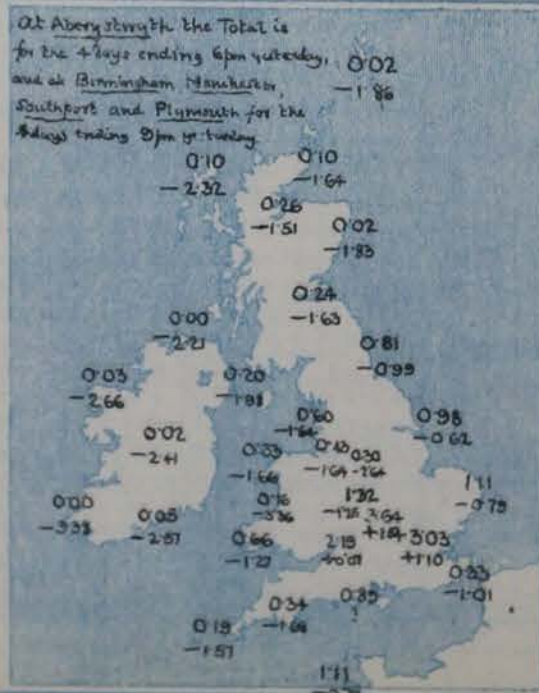 At Aberystwyth the Total is
for the 4 days ending 6pm yesterday,
and at Birmingham Manchester,
Southport and Plymouth for the
days ending 9pm yesterday
0·02
−1·86
0·10
−2·32
0·10
−1·64
0·26
−1·51
0·02
−1·83
0·24
−1·63
0·00
−2·21
0·81
−0·99
0·03
−2·66
0·20
0·02
−2·41
0·60
−1·64
0·98
−0·62
0·33
−1·66
−1·64
0·30
1·11
−0·79
0·00
0·05
−2·57
1·32
0·66
−1·27
2·19
3·03
+1·10
0·33
−1·01
0·34
0·89
0·19
−1·57
1·11